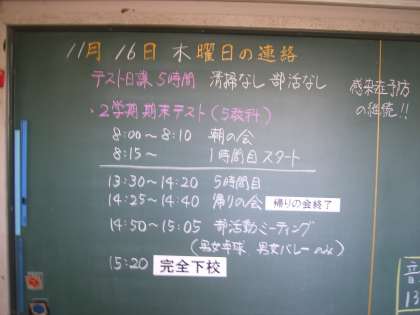 11月 16日 木曜日の連絡
テスト日課 5時間 清掃なし 部活なし
感染症予防
の継続!!
・2学期期末テスト(5教科)
8:00〜8:10 朝の会
8:15〜 1時間目スタート
13:30〜14:20 5時間目
14:25〜14:40 帰りの会 帰りの会終了
14:50〜15:05 部活動ミーティング
(男女卓球 男女バレーのみ)
15:20 完全下校
音
13